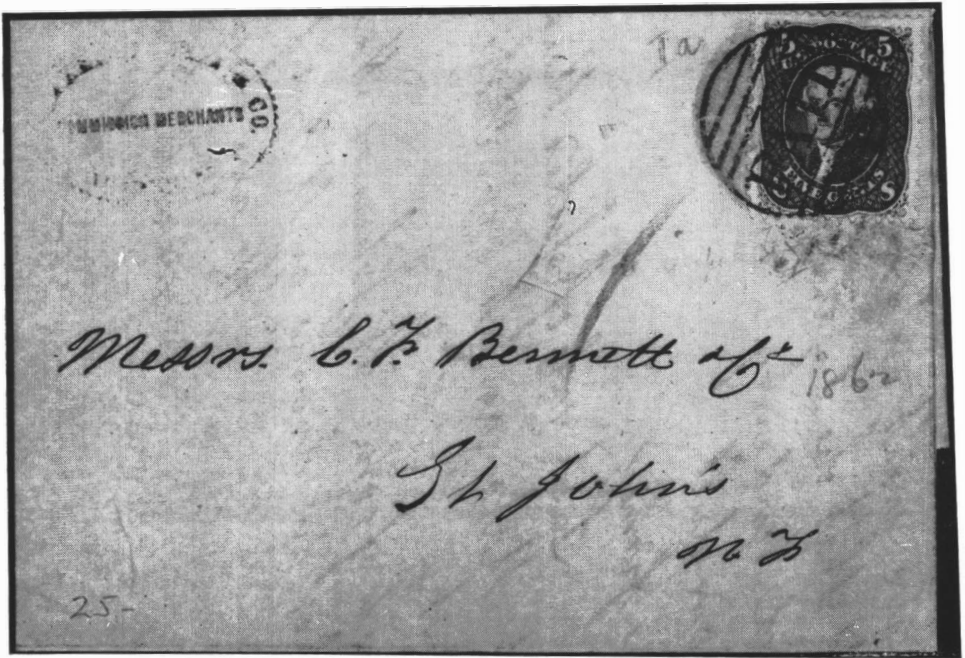 CO.
COMMISSION MERCHANTS
5 U.S. POSTAGE 5
FIVE CENTS
Messrs. C. F. Bennett & Co
1862
St John's
N F
25-